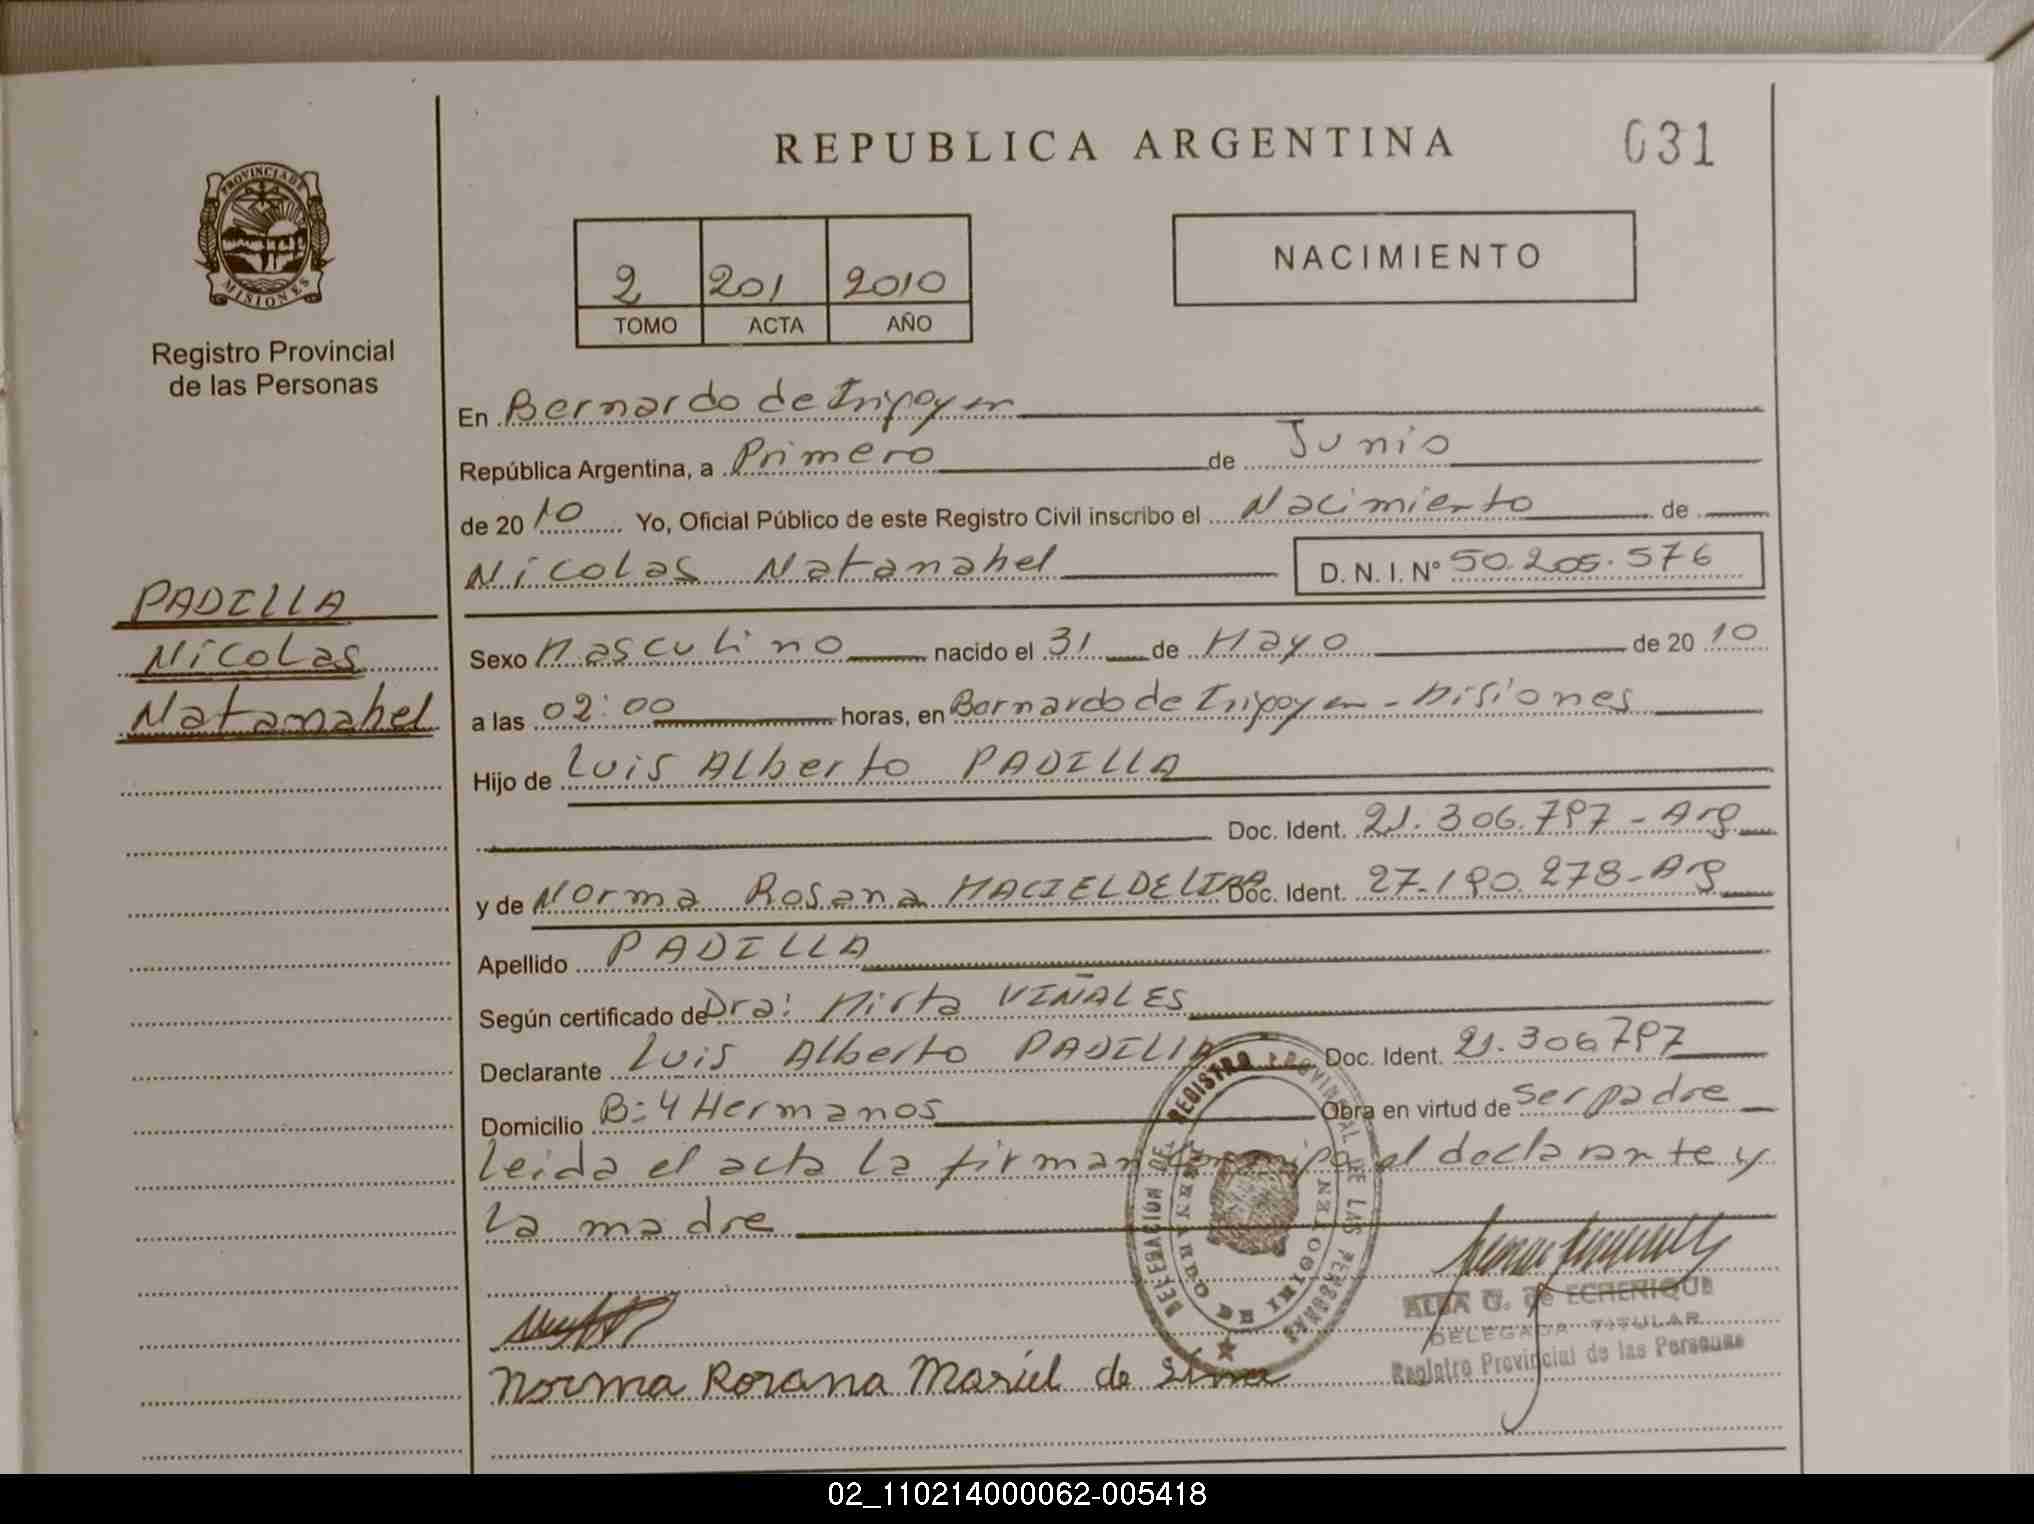 REPUBLICA ARGENTINA
031
PROVINCIA DE
MISIONES
Registro Provincial
de las Personas
2 201 2010
TOMO ACTA AÑO
NACIMIENTO
En Bernardo de Irigoyen
República Argentina, a Primero de Junio
de 2010 Yo, Oficial Público de este Registro Civil inscribo el Nacimiento de
Nicolas Natanahel D. N. I. Nº 50.205.576
PADILLA
Nicolas
Natanahel
Sexo Masculino nacido el 31 de Mayo de 2010
a las 02:00 horas, en Bernardo de Irigoyen - Misiones
Hijo de Luis Alberto PADILLA
Doc. Ident. 21.306.797 - Arg
y de Norma Rosana MACIEL DE LIMA Doc. Ident. 27.190.278 - Arg
Apellido PADILLA
Según certificado de Dra: Mirta VIÑALES
Declarante Luis Alberto PADILLA Doc. Ident. 21.306797
Domicilio B: 4 Hermanos Obra en virtud de ser padre
Leida el acta la firman conmigo el declarante y
la madre
DELEGACIÓN DE REGISTRO PROVINCIAL DE LAS PERSONAS
BERNARDO DE IRIGOYEN
ALBA G. de ECHENIQUE
DELEGADA TITULAR
Registro Provincial de las Personas
Norma Rosana Maciel de Lima
02_110214000062-005418